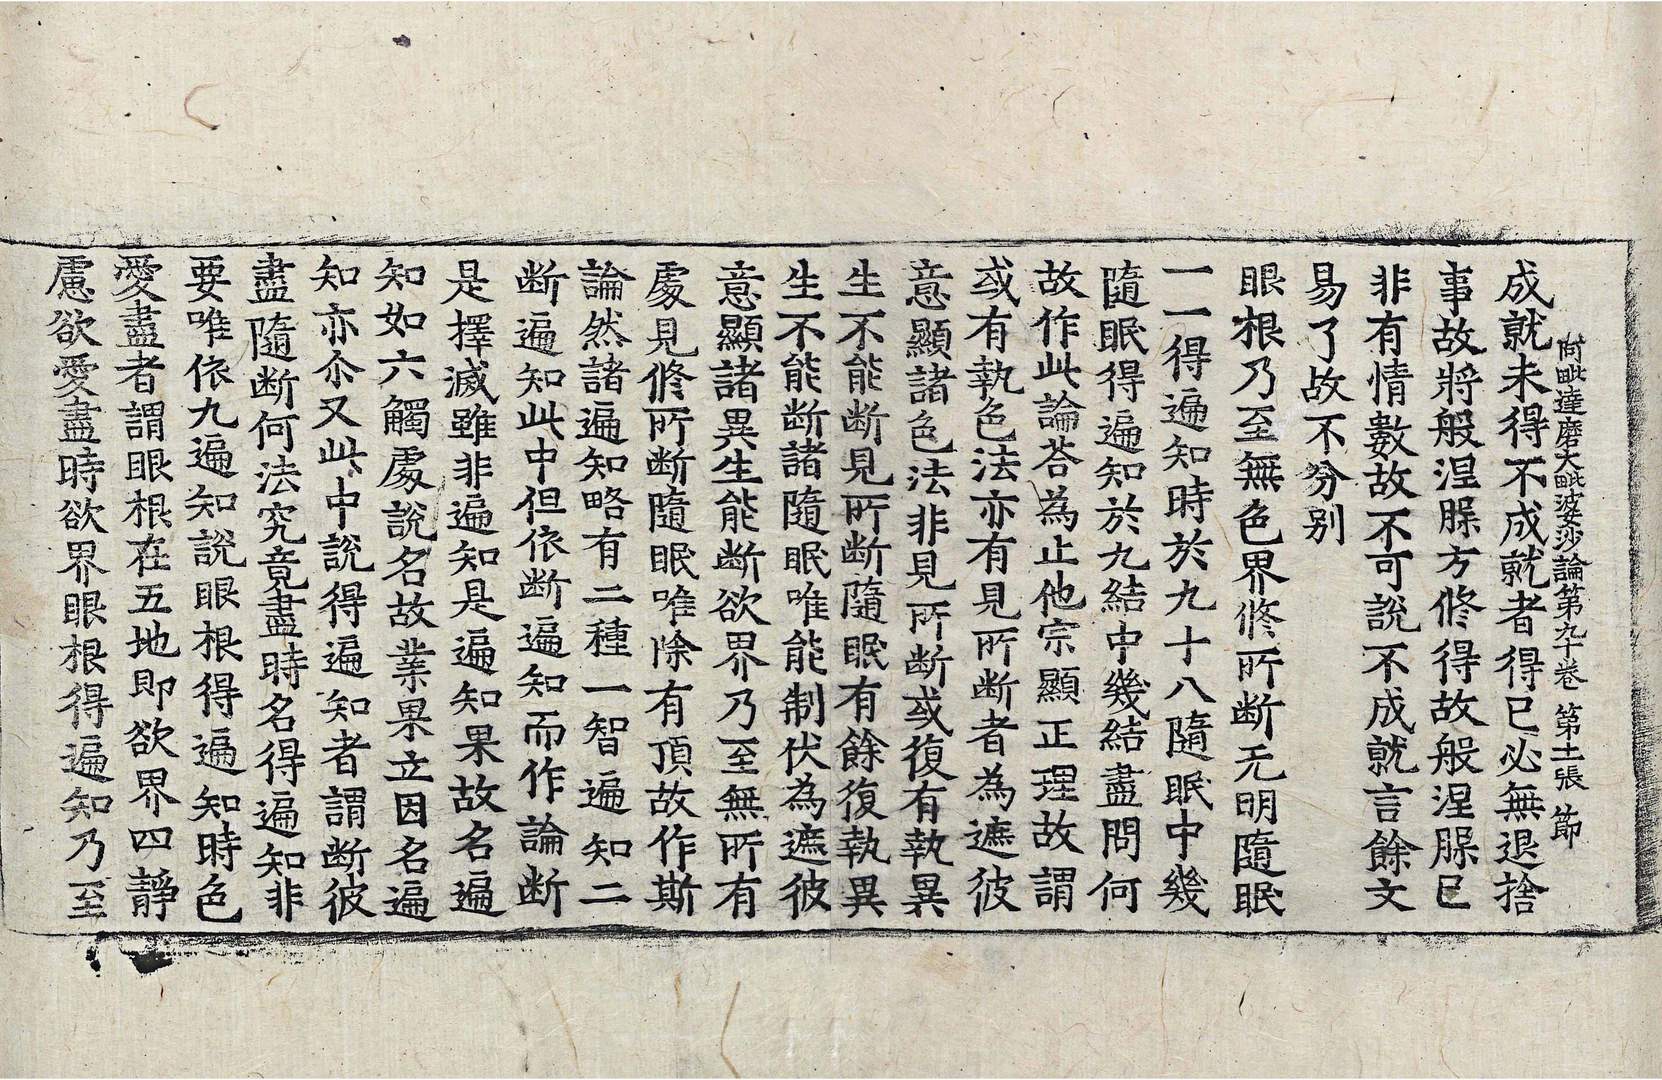 阿毗達磨大毗婆沙論第九十卷 第十二張 節
成就未得不成就者得已必無退捨
事故將般涅槃方修得故般涅槃已
非有情數故不可說不成就言餘文
易了故不分別
眼根乃至無色界修所斷无明隨眠
一一得遍知時於九十八隨眠中幾
隨眠得遍知於九結中幾結盡問何
故作此論荅為止他宗顯正理故謂
或有執色法亦有見所斷者為遮彼
意顯諸色法非見所斷或復有執異
生不能斷見所斷隨眠有餘復執異
生不能斷諸隨眠唯能制伏為遮彼
意顯諸異生能斷欲界乃至無所有
處見修所斷隨眠唯除有頂故作斯
論然諸遍知略有二種一智遍知二
断遍知此中但依断遍知而作論断
是擇滅雖非遍知是遍知果故名遍
知如六觸處說名故業果立因名遍
知亦尒又此中說得遍知者謂断彼
盡隨断何法究竟盡時名得遍知非
要唯依九遍知說眼根得遍知時色
愛盡者謂眼根在五地即欲界四靜
慮欲愛盡時欲界眼根得遍知乃至